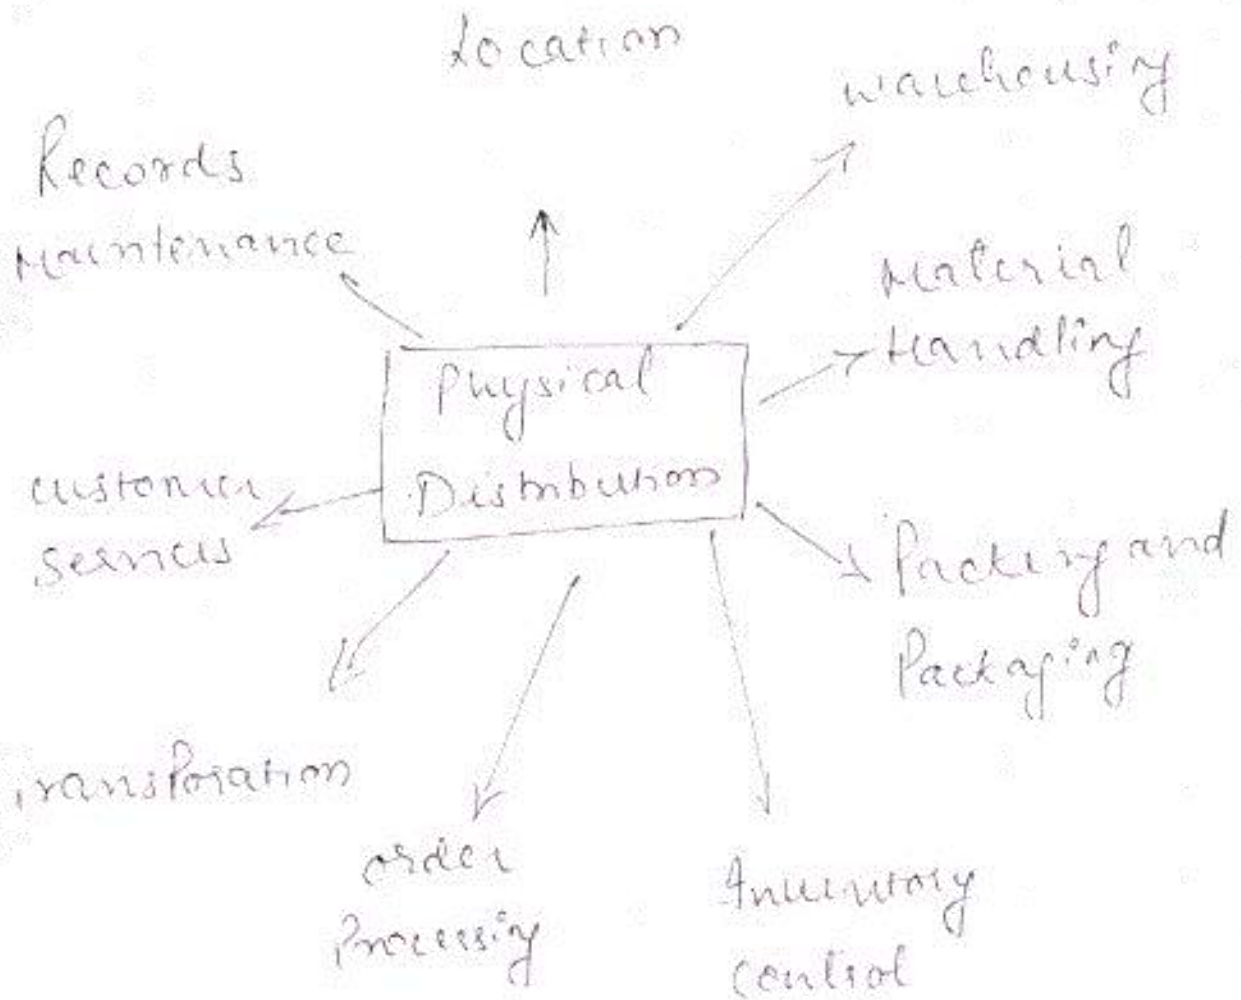 Location
warehousing
Records
Maintenance
Material
Handling
Physical
Distribution
customer
services
Packing and
Packaging
Transporation
order
Processing
Inventory
control